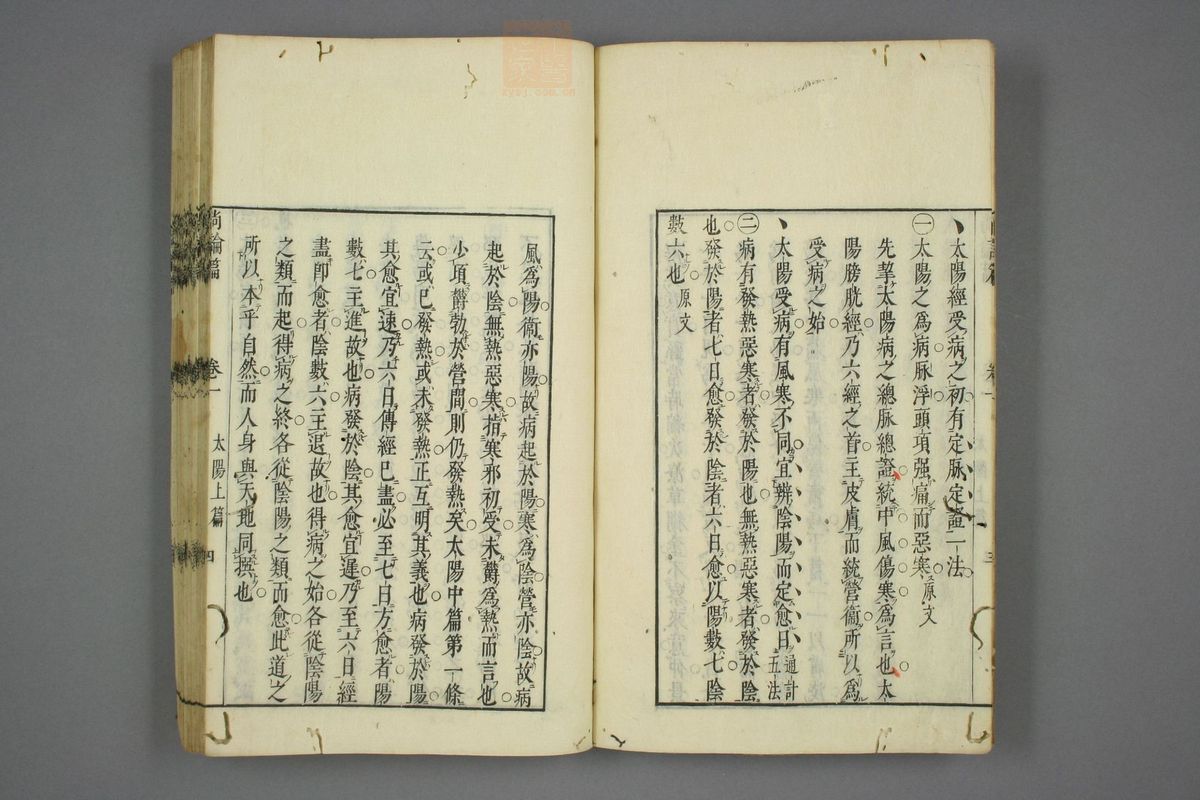 丶太陽經受病之初有定脉定證一法
㊀太陽之爲病脉浮頭項强痛而惡寒原文
先挈太陽病之總脉總證統中風傷寒爲言也太
陽膀胱經乃六經之首主皮膚而統營衞所以爲
受病之始
丶太陽受病有風寒不同宜辨陰陽而定愈日通計五法
㊁病有發熱惡寒者發於陽也無熱惡寒者發於陰
也發於陽者七日愈發於陰者六日愈以陽數七陰
數六也原文
卷一
三
風爲陽衞亦陽故病起於陽寒爲陰營亦陰故病
起於陰無熱惡寒指寒邪初受未欝爲熱而言也
少頃欝勃於營間則仍發熱矣太陽中篇第一條
云或已發熱或未發熱正互明其義也病發於陽
其愈宜速乃六日傳經已盡必至七日方愈者陽
數七主進故也病發於陰其愈宜遲乃至六日經
盡卽愈者陰數六主退故也得病之始各從陰陽
之類而起得病之終各從陰陽之類而愈此道之
所以本乎自然而人身與天地同撰也
尚論篇
卷一
太陽上篇
四
zysj.com.cn